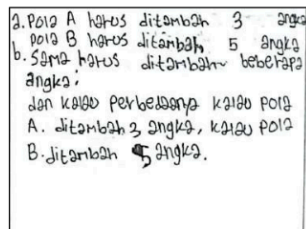 a. Pola A harus ditambah 3 angka
Pola B harus ditanbah 5 angka
b. Sama harus ditambah beberapa
angka;
dan kalau perbedaanya kalau pola
A. ditambah 3 angka, kalau pola
B. ditambah 5 angka.